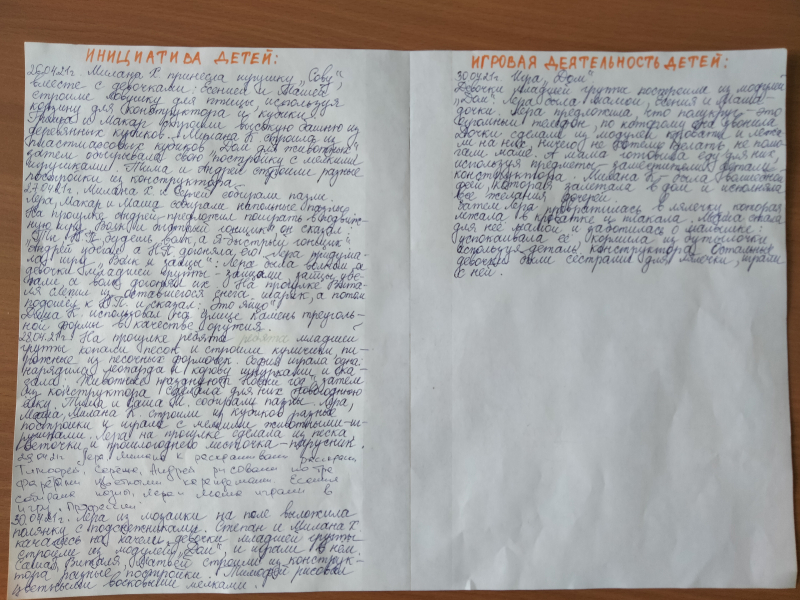 ИНИЦИАТИВА ДЕТЕЙ:
26.04.21г. Милана Х принесла игрушку „Сову",
вместе с девочками: Есенией и Машей,
строили ловушку для птицы, используя
корзину для конструктора и кубики.
и Макар строили высокую башню из
деревянных кубиков. Милана строила из
пластмассовых кубиков „Дом для животных"
затем обыгрывала свою постройку с мелкими
игрушками. Тима и Андрей строили разные
постройки из конструктора.
27.04.21г. Милана Х и Сергей собирали пазлы.
Лера, Макар и Маша собирали напольные пазлы.
На прогулке Андрей предложил поиграть в подвиж-
ную игру „Волк и быстрый гонщик" он сказал:
будешь волк, а я быстрый гонщик"
Андрей убегал, а догоняла его. Лера придума-
ла игру „Волк и зайцы": Лера была волком, а
девочки младшей группы зайцами, зайцы убе-
гали, а волк догонял их. На прогулке Вита-
ля слепил из оставшегося снега шарик, а потом
подошёл к и сказал: „Это яйцо"
К. использовал на улице камень треуголь-
ной формы в качестве оружия.
28.04.21г. На прогулке ребята младшей
группы копали песок и строили куличики пи-
рожные из песочных формочек. София играла одна:
нарядила леопарда и корову шнурками и ска-
зала: „Животные празднуют Новый год", затем
из конструктора сделала для них новогоднюю
ёлку. Тима и Саша М. собирали пазлы. Лера,
Маша, Милана К. строили из кубиков разные
постройки и играли с мелкими животными-и-
грушками. Лера на прогулке сделала из песка
и прошлогоднего листочка - парусник.
29.04.21г Лера Милана К раскрашивали
Тимофей, Сережа, Андрей рисовали по тра-
фаретам цветными карандашами Есения
собирала пазлы, Лера и Маша играли в
игру „Профессии"
30.04.21г. Лера из мозаики на поле выложила
полянку с подснежниками. Степан и Милана Х.
качались на качели, девочки младшей группы
строили из модулей „Дом", и играли в нём.
Саша, Виталя, Матвей строили из конструк-
тора разные постройки. Тимофей рисовал
цветными восковыми мелками.
ИГРОВАЯ ДЕЯТЕЛЬНОСТЬ ДЕТЕЙ:
30.04.21г. Игра „Дом"
Девочки младшей группы построили из модулей
„Дом". Лера была мамой, Есения и Маша -
дочки. Лера предложила что
телефон, по которому она звонила.
Дочки сделали из модулей кровати и лежа-
ли на них, ничего не хотели делать, не помо-
гали маме. А мама готовила еду для них,
используя предметы-заместители (детали
конструктора). Милана К - была волшебной
феей, которая залетала в дом и исполняла
все желания дочерей.
Затем Лера превратилась в лялечку, которая
лежала в кроватке и плакала. Маша стала
для неё мамой и заботилась о малышке:
успокаивала её, кормила из бутылочки
используя деталь конструктора. Остальные
девочки были сёстрами для лялечки, играли
с ней.